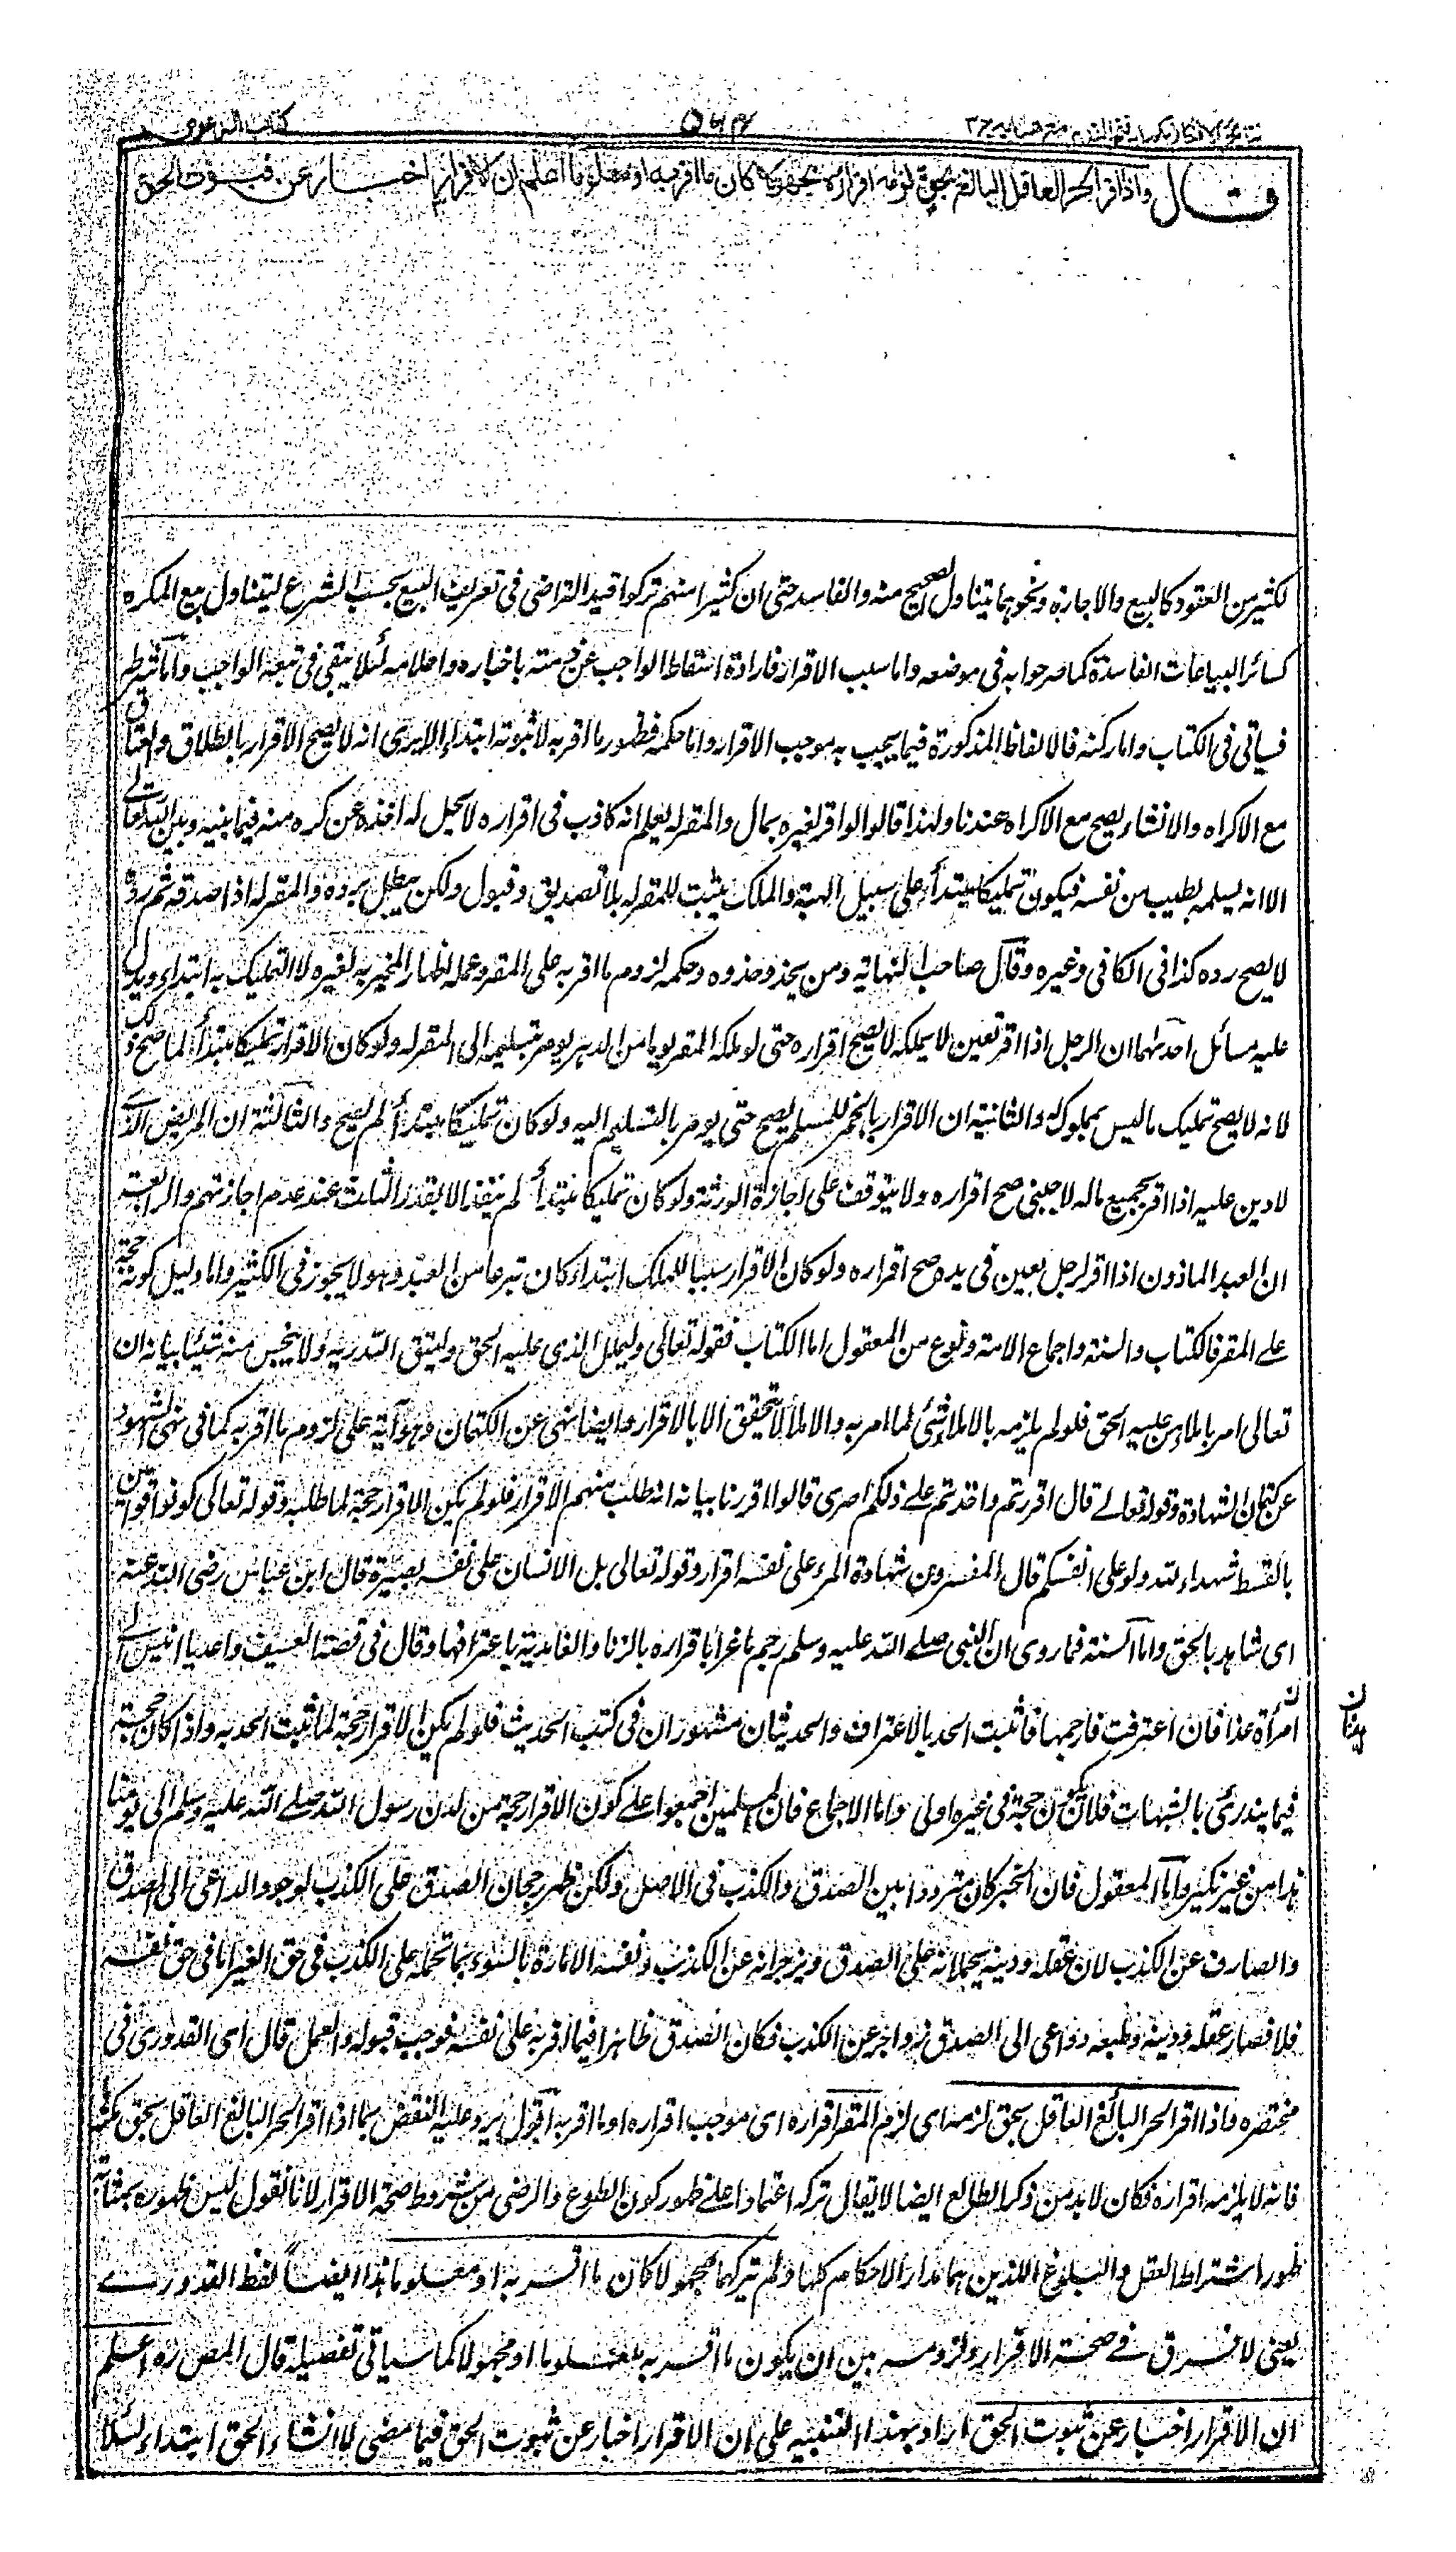 نتائج الافكار تكملة فتح القدير مع هداية ج ٣
كتاب الدعوى
قال واذا اقر الحر العاقل البالغ بحق لزمه اقراره مجهولا كان ما اقر به او معلوما اعلم ان الاقرار اخبار عن ثبوت الحق
لكثير من العقود كالبيع والاجارة ونحوهما يتناول الصحيح منه والفاسد حتى ان كثيرا منهم تركوا قيد التراضى فى تعريف البيع بحسب الشرع ليتناول بيع المكره
كسائر البياعات الفاسدة كما صرحوا به فى موضعه واما سبب الاقرار فارادة اسقاط الواجب عن ذمته باخباره واعلامه لئلا يبقى فى تبعة الواجب واما شرطه
فسياتى فى الكتاب واما ركنه فالالفاظ المذكورة فيما يجب به موجب الاقرار واما حكمه فظهور ما اقر به لا ثبوته ابتداء الا يرى انه لا يصح الاقرار بالطلاق والعتاق
مع الاكراه والانشاء يصح مع الاكراه عندنا ولهذا قالوا لو اقر لغيره بمال والمقر له يعلم انه كاذب فى اقراره لا يحل له اخذه عن كره منه فيما بينه وبين الله تعالى
الا انه يسلمه بطيب من نفسه فيكون تمليكا مبتدأ على سبيل الهبة والملك يثبت للمقر له بلا تصديق وقبول ولكن يبطل برده والمقر له اذا صدقه ثم رده
لا يصح رده كذا فى الكافى وغيره وقال صاحب النهاية ومن يحذو حذوه وحكمه لزوم ما اقر به على المقر وعمله اظهار المخبر به لغيره لا التمليك به ابتداء ويدل
عليه مسائل احدٰها ان الرجل اذا اقر بعين لا يملكه لا يصح اقراره حتى لو ملكه المقر يوما من الدهر يومر بتسليمه الى المقر له ولو كان الاقرار تمليكا مبتدأ لما صح ذلك
لانه لا يصح تمليك ما ليس بمملوك له والثانية ان الاقرار بالخمر للمسلم يصح حتى يومر بالتسليم اليه ولو كان تمليكا مبتدأ لم يصح والثالثة ان المريض الذى
لا دين عليه اذا اقر بجميع ماله لاجنبى صح اقراره ولا يتوقف على اجازة الورثة ولو كان تمليكا مبتدأ لم ينفذ الا بقدر الثلث عند عدم اجازتهم والرابعة
ان العبد الماذون اذا اقر لرجل بعين فى يده صح اقراره ولو كان الاقرار سببا للملك ابتداء كان تبرعا من العبد وهو لا يجوز فى الكثير واما دليل كونه حجة
على المقر فالكتاب والسنة واجماع الامة ونوع من المعقول اما الكتاب فقوله تعالى وليملل الذى عليه الحق وليتق الله ربه ولا يبخس منه شيئا بيانه ان
تعالى امر باملاء من عليه الحق فلو لم يلزمه بالاملاء شئ لما امر به والاملاء لا يتحقق الا بالاقرار وايضا نهى عن الكتمان وهو آية على لزوم ما اقر به كما فى نهى الشهود
عن كتمان الشهادة وقوله تعالى قال اقررتم واخذتم على ذلكم اصرى قالوا اقررنا بيانه انه طلب منهم الاقرار فلو لم يكن الاقرار حجة لما طلبه وقوله تعالى كونوا قوامين
بالقسط شهداء لله ولو على انفسكم قال المفسرون شهادة المرء على نفسه اقرار وقوله تعالى بل الانسان على نفسه بصيرة قال ابن عباس رضى الله عنه
اى شاهد بالحق واما السنة فما روى ان النبى صلى الله عليه وسلم رجم ماعزا باقراره بالزنا والغامدية باعترافها وقال فى قصة العسيف واغد يا انيس الى
امرأة هذا فان اعترفت فارجمها فاثبت الحد بالاعتراف والحديثان مشهوران فى كتب الحديث فلو لم يكن الاقرار حجة لما ثبت الحد به واذا كان حجة
فيما يندرئ بالشبهات فلان يكون حجة فى غيره اولى واما الاجماع فان المسلمين اجمعوا على كون الاقرار حجة من لدن رسول الله صلى الله عليه وسلم الى يومنا
هذا من غير نكير واما المعقول فان الخبر كان مترددا بين الصدق والكذب فى الاصل ولكن ظهر رجحان الصدق على الكذب لوجود الداعى الى الصدق
والصارف عن الكذب لان عقله ودينه يحملانه على الصدق ويزجرانه عن الكذب ونفسه الامارة بالسوء ربما تحمله على الكذب فى حق الغير اما فى حق نفسه
فلا فصار عقله ودينه وطبعه دواعى الى الصدق زواجر عن الكذب فكان الصدق ظاهرا فيما اقر به على نفسه فوجب قبوله والعمل قال اى القدورى فى
مختصره واذا اقر الحر البالغ العاقل بحق لزمه اى لزم المقر اقراره اى موجب اقراره او ما اقر به اقول يرد عليه النقض بما اذا اقر الحر البالغ العاقل بحق مكرها
فانه لا يلزمه اقراره فكان لا بد من ذكر الطائع ايضا لا يقال تركه اعتمادا على ظهور كون الطوع والرضى من شروط صحة الاقرار لانا نقول ليس ظهوره بمثابة
ظهور اشتراط العقل والبلوغ اللذين هما مدار الاحكام كلها ولم يتركهما مجهولا كان ما اقر به او معلوما هذا ايضا لفظ القدورى
يعنى لا فرق فى صحة الاقرار ولزومه بين ان يكون ما اقر به معلوما او مجهولا كما سياتى تفصيله قال المص ره اعلم
ان الاقرار اخبار عن ثبوت الحق اراد بهذا التنبيه على ان الاقرار اخبار عن ثبوت الحق فيما مضى لا انشاء الحق ابتداء لئلا